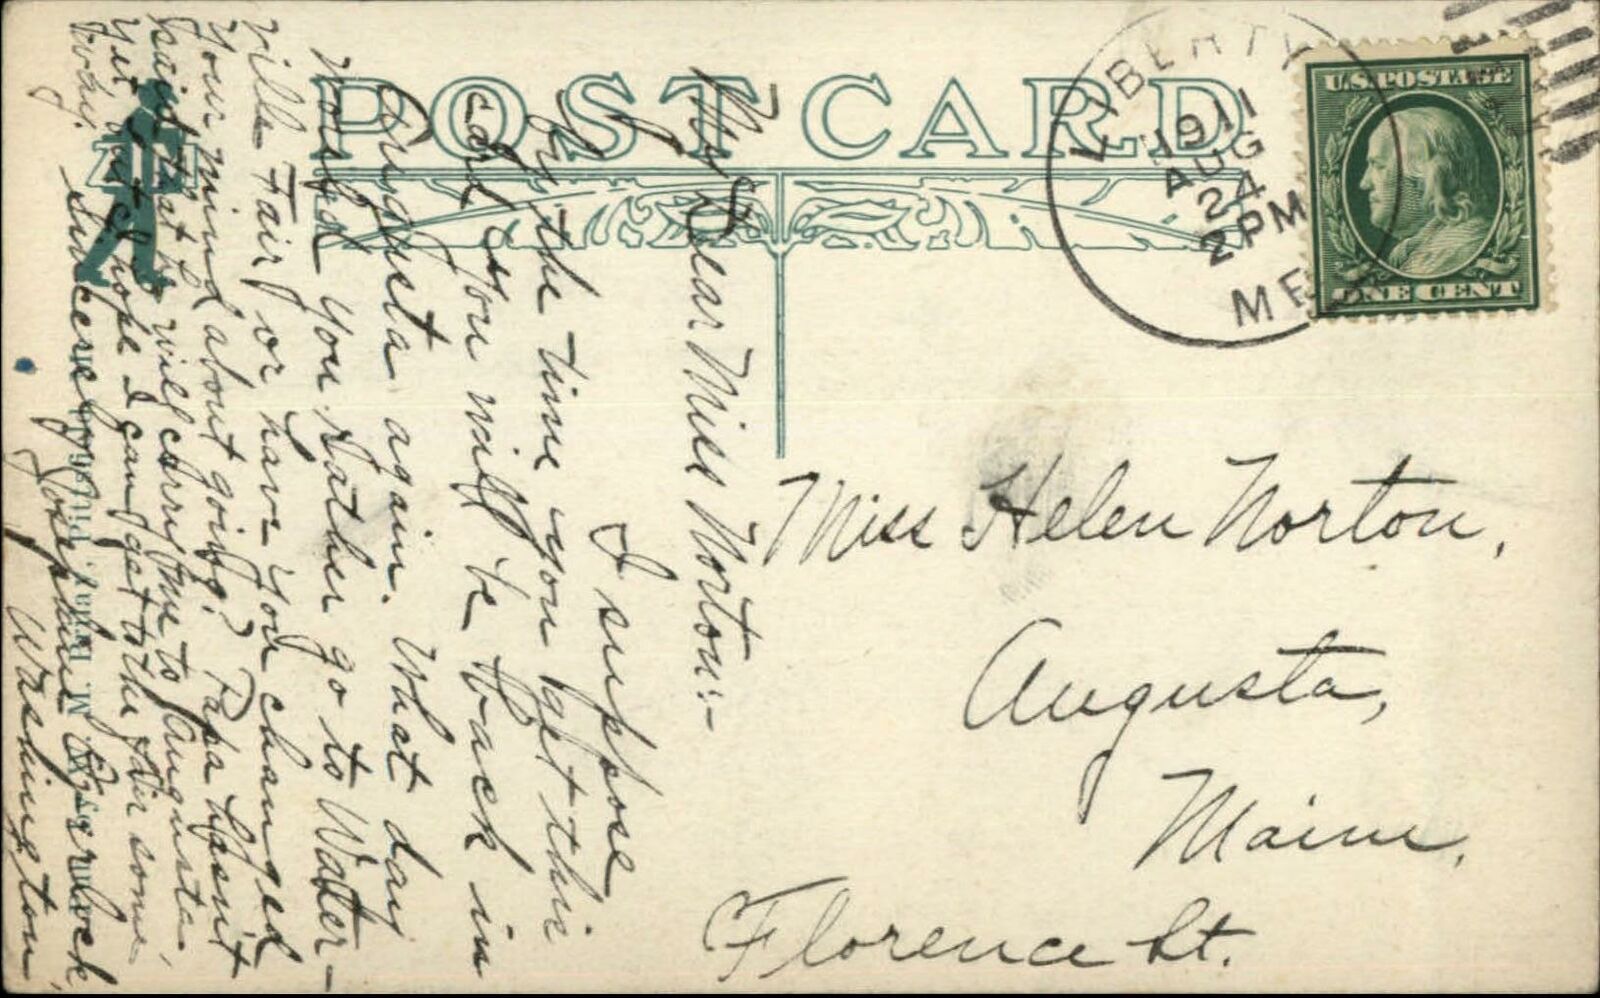 POST CARD
LIBERTY
1911
AUG
24
2 PM
ME
U.S. POSTAGE
ONE CENT
My Dear Miss Norton:-
I suppose
by the time you get this
card you will be back in
Augusta again. What day
would you rather go to Water-
ville Fair, or have you changed
your mind about going? Papa hasn't
said that he will carry me to Augusta,
yet but I hope I can get to the Fair some-
way.
Sincerely,
Josephine
Washington,
Miss Helen Norton,
Augusta,
Maine.
Florence St.